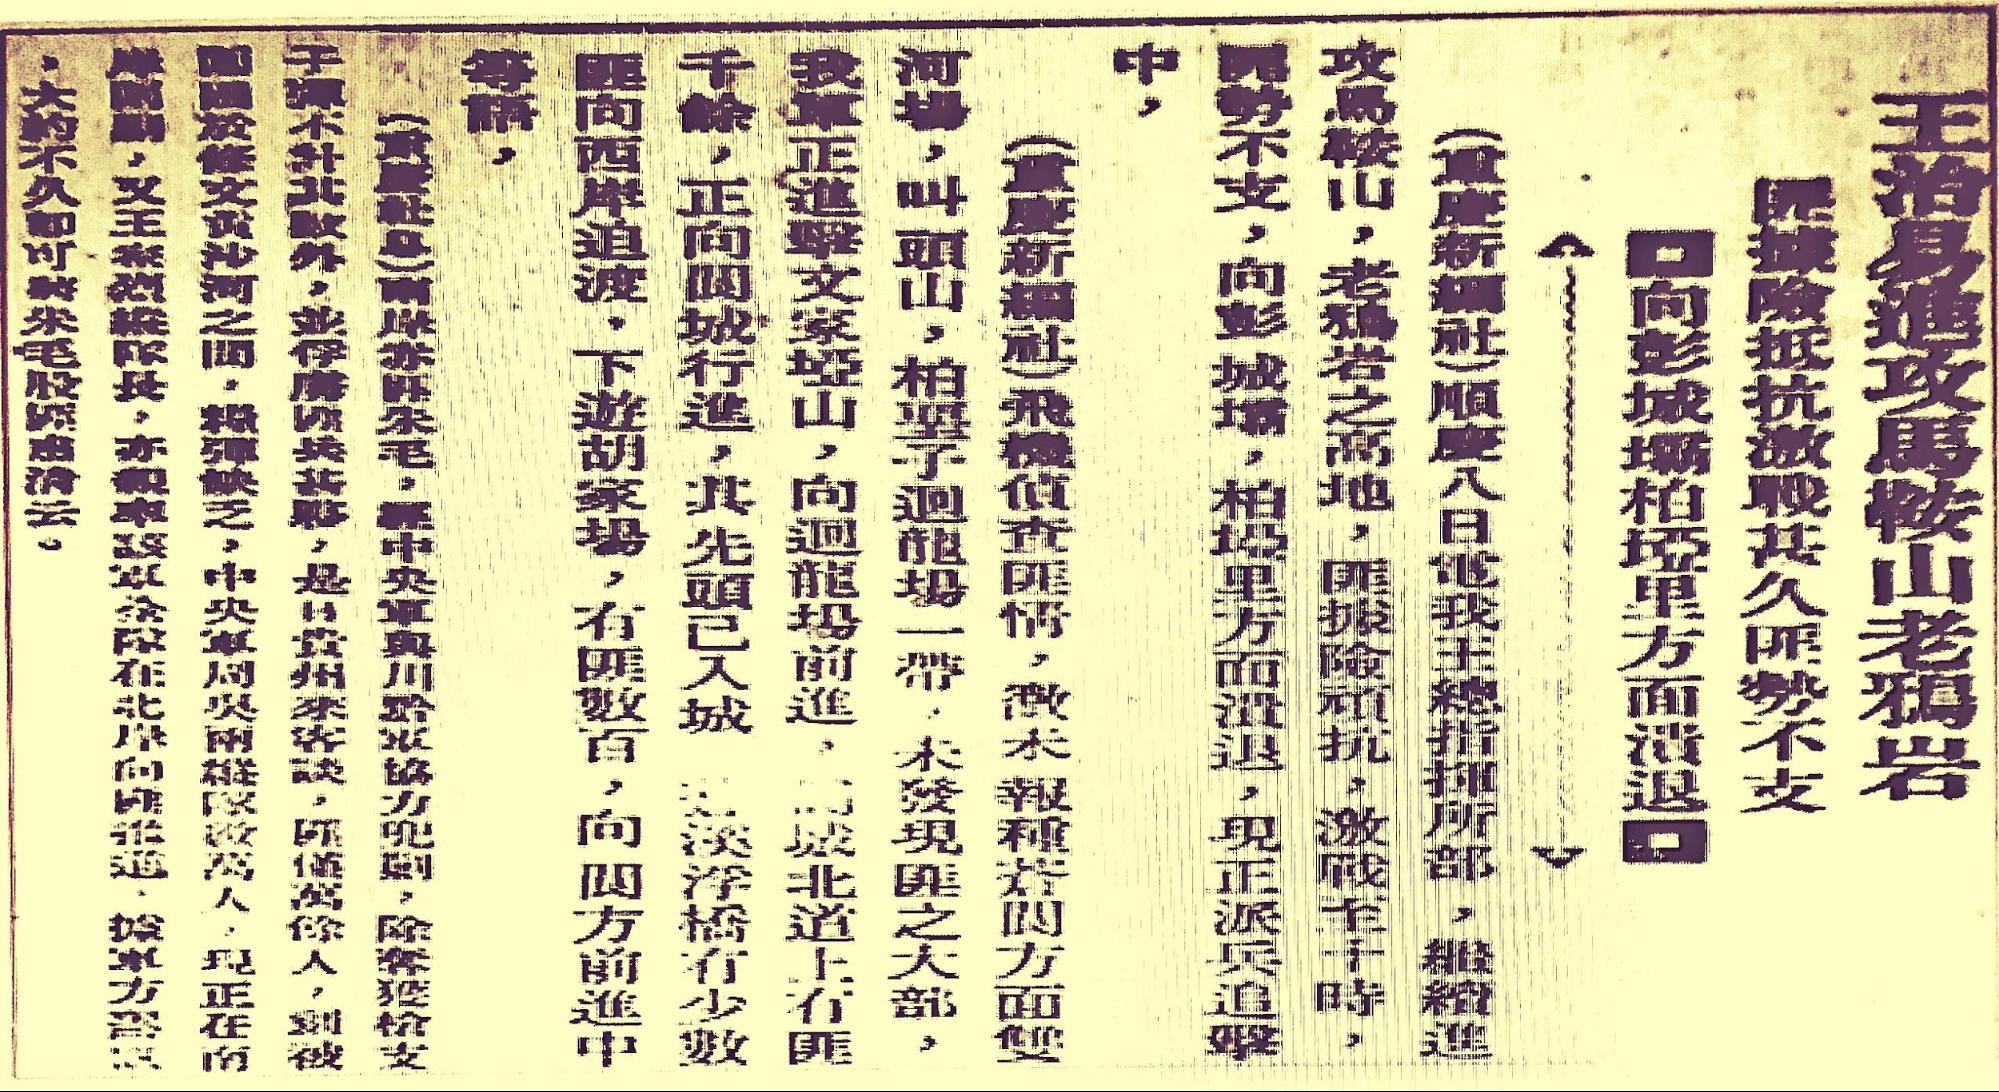 王治易進攻馬鞍山老鴉岩
匪據險抵抗激戰甚久匪勢不支
向彭城壩柏埡里方面潰退
(重慶新聞社)順慶八日電我王總指揮所部，繼續進
攻馬鞍山，老鴉岩之高地，匪據險頑抗，激戰至十時，
匪勢不支，向彭城壩，柏埡里方面潰退，現正派兵追擊
中，
(重慶新聞社)飛機偵查匪情，報種若閬方面雙
河場，叫頭山，柏埡子迴龍場一帶，未發現匪之大部，
我軍正進擊文家埡山，向迴龍場前進，城北道上有匪
千餘，正向閬城行進，其先頭已入城 浮橋有少數
匪向西岸追渡，下遊胡家場，有匪數百，向閬方前進中
等語，
朱毛，中央軍與川黔軍協力兜剿，除奪獲槍支
子彈不計其數外，並俘虜匪兵甚夥，是日貴州來客談，匪僅萬餘人，刻被
文黃沙河之間，糧彈缺乏，中央軍周吳兩縱隊數萬人，現正在南
岸，又王家烈縱隊長，亦親率該軍全隊在北岸向匪進迫，據軍方
，大約不久即可將朱毛股匪肅清云。